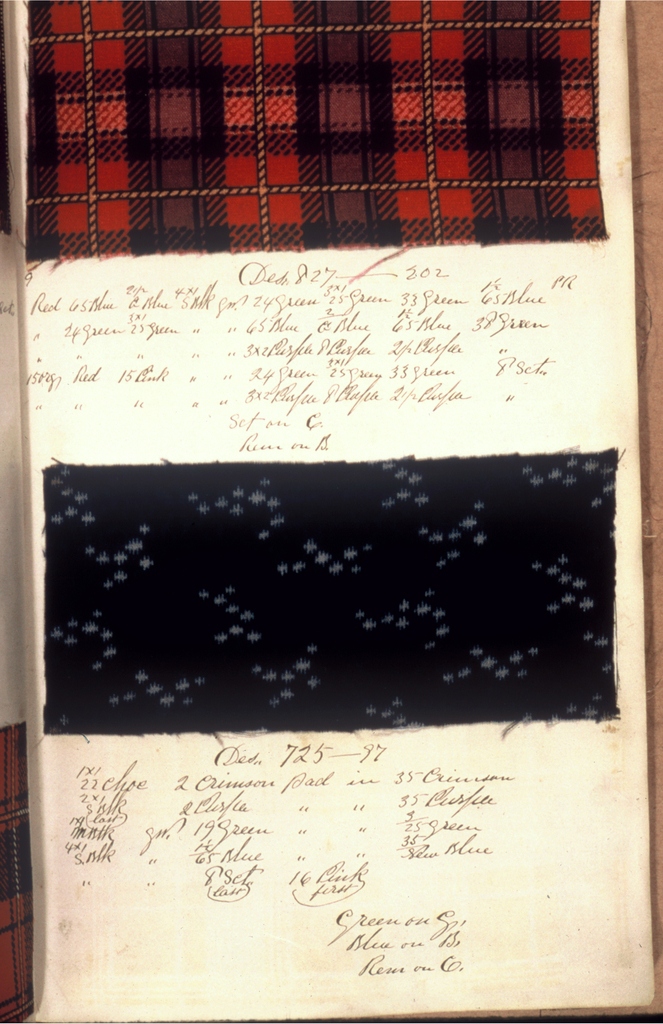 9
Des. 827 — 202
Red 65 Blue 2/2 C Blue 4x1 S Blk grd. 24 Green 3x1 25 Green 33 Green 1½ 65 Blue PR
" 24 Green 3x1 25 Green " " 65 Blue 2 C Blue 1½ 65 Blue 38 Green
" " " " " 3x2 Purple 8 Purple 2/2 Purple "
Red 15 Pink " " 24 Green 3x1 25 Green 33 Green 8 Sct.
" " " " " 3x2 Purple 8 Purple 2/2 Purple "
Set on C.
Rem on B.
Des. 725—97
1x1
22 Choc 2 Crimson pad in 35 Crimson
2x1
S Blk (last) 2 Purple " " 35 Purple
Blk grd. 19 Green " " 3/25 Green
4x1
S. Blk " 1½ 65 Blue " " 35 New Blue
" " 8 Sct. (last) 16 Pink (first)
Green on G.
Blue on B.
Rem on C.